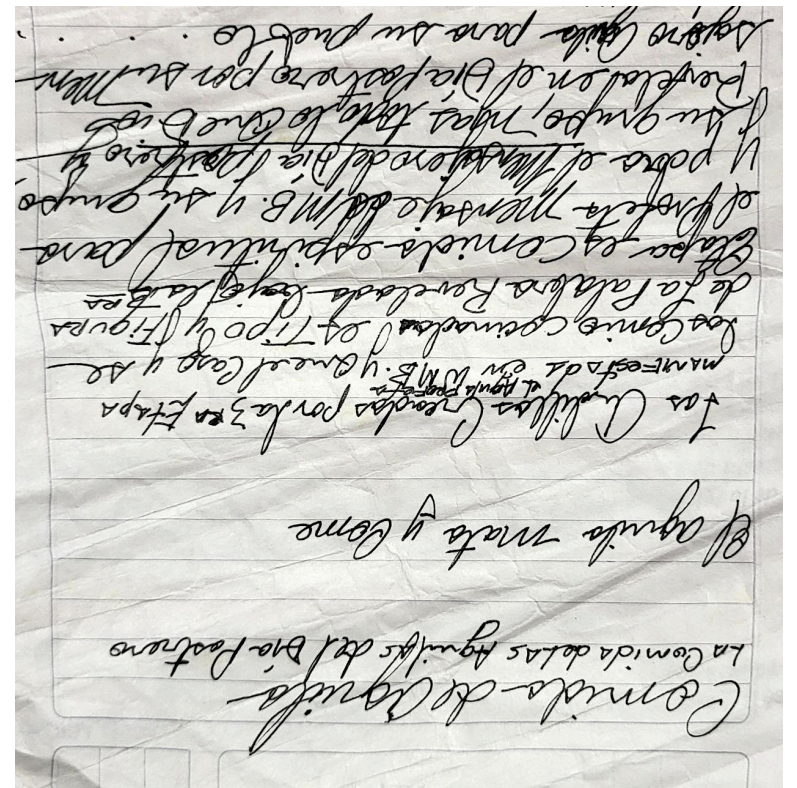 Comida de Aguila
La Comida de las Aguilas del Dia Postrero
El aguila mata y Come
Las Ardillas Creadas por la 3RA Etapa
el Aguila Profeta
manifestada en W M B. y que el cazo y se
las comio cocinadas es Tipo y Figura
de La Palabra Revelada bajo la 3RA
Etapa es Comida espiritual para
el profeta mensajero WMB. y su grupo,
y para el Mensajero del Dia postrero y
su grupo, mas todo lo que Dios
Revela en el Dia postrero por su Men-
sajero Aguila para su pueblo